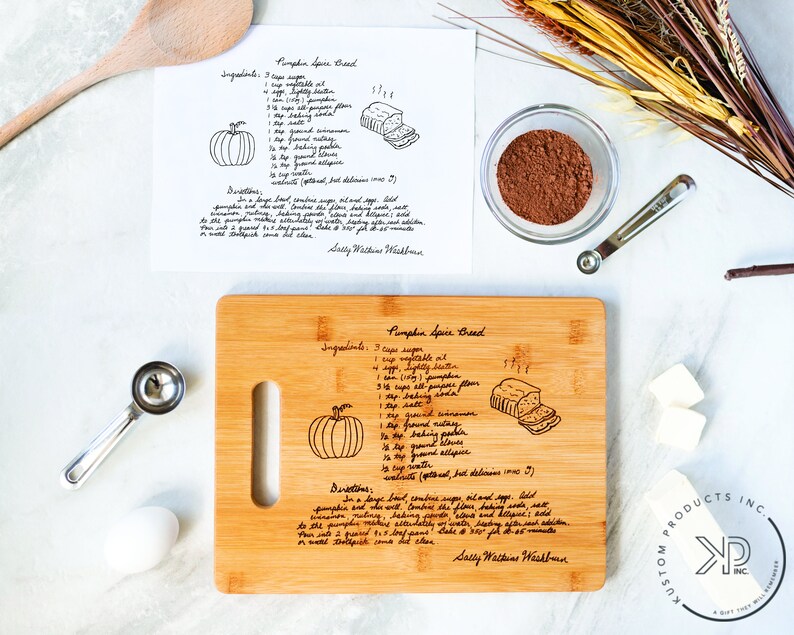 Pumpkin Spice Bread
Ingredients: 3 cups sugar
1 cup vegetable oil
4 eggs, lightly beaten
1 can (15oz) pumpkin
3 ½ cups all-purpose flour
1 tsp. baking soda
1 tsp. salt
1 tsp. ground cinnamon
1 tsp. ground nutmeg
½ tsp. baking powder
½ tsp. ground cloves
½ tsp. ground allspice
½ cup water
walnuts (optional, but delicious IMHO)
Directions:
In a large bowl, combine sugar, oil and eggs. Add
pumpkin and mix well. Combine the flour, baking soda, salt,
cinnamon, nutmeg, baking powder, cloves and allspice; add
to the pumpkin mixture alternately w/ water, beating after each addition.
Pour into 2 greased 9x5 loaf pans. Bake @ 350° for 60-65 minutes
or until toothpick comes out clean.
Sally Watkins Washburn
Pumpkin Spice Bread
Ingredients: 3 cups sugar
1 cup vegetable oil
4 eggs, lightly beaten
1 can (15oz) pumpkin
3 ½ cups all-purpose flour
1 tsp. baking soda
1 tsp. salt
1 tsp. ground cinnamon
1 tsp. ground nutmeg
½ tsp. baking powder
½ tsp. ground cloves
½ tsp. ground allspice
½ cup water
walnuts (optional, but delicious IMHO)
Directions:
In a large bowl, combine sugar, oil and eggs. Add
pumpkin and mix well. Combine the flour, baking soda, salt,
cinnamon, nutmeg, baking powder, cloves and allspice; add
to the pumpkin mixture alternately w/ water, beating after each addition.
Pour into 2 greased 9x5 loaf pans. Bake @ 350° for 60-65 minutes
or until toothpick comes out clean.
Sally Watkins Washburn
KUSTOM PRODUCTS INC.
KP
INC.
A GIFT THEY WILL REMEMBER